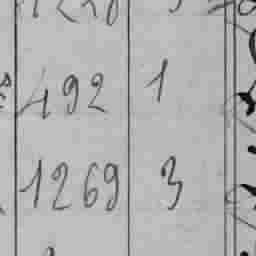 492 1
1269 3